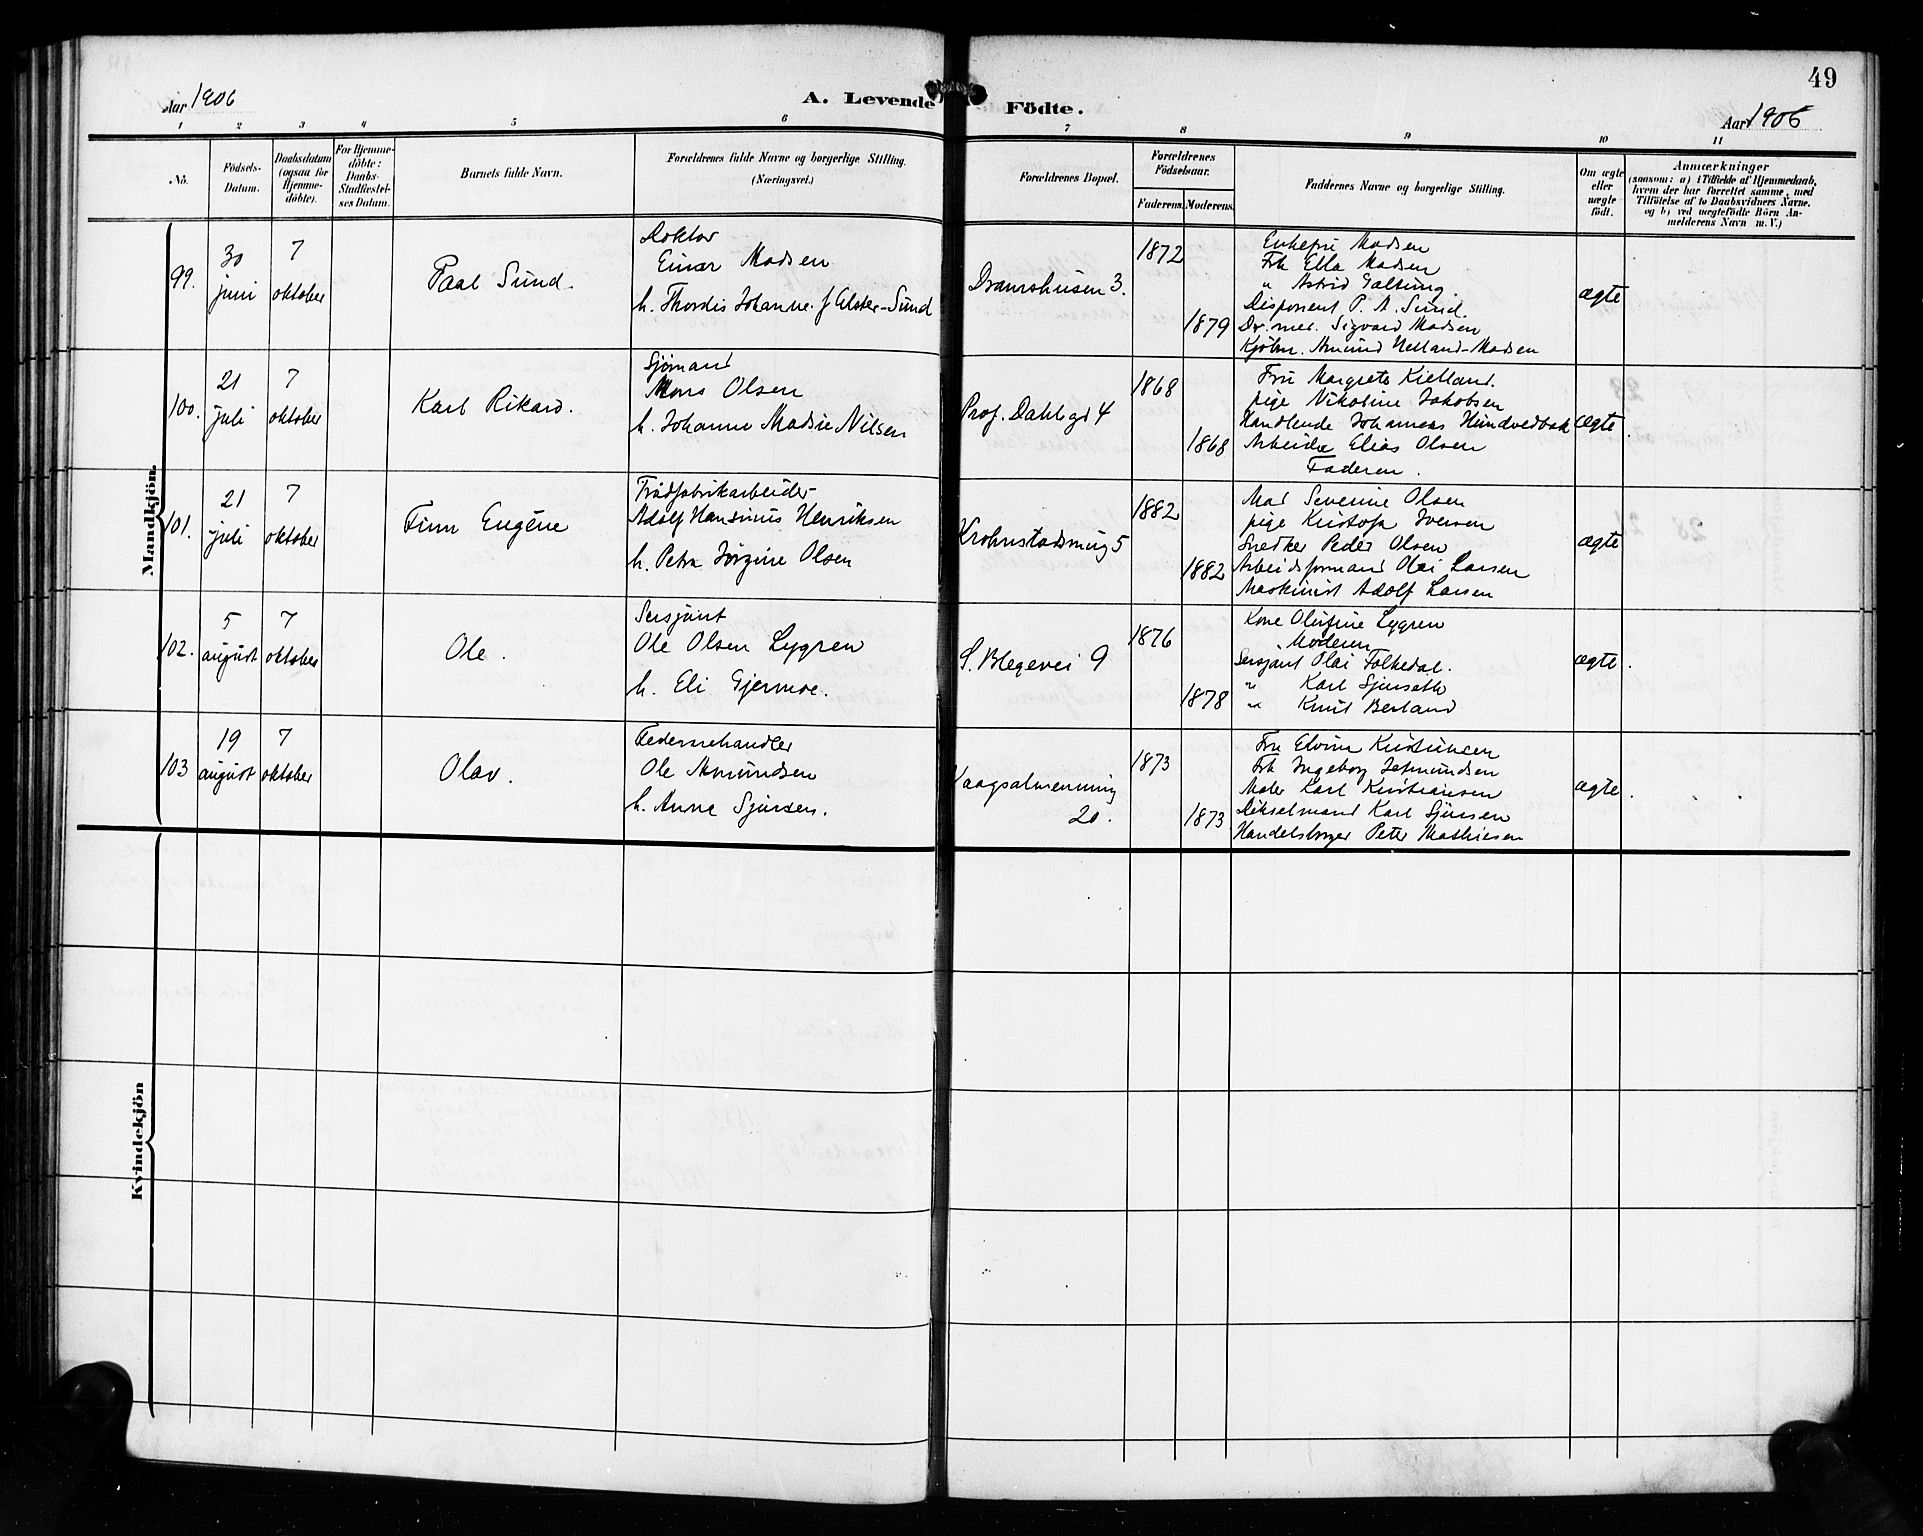 49
Aar 1906
A. Levende Födte.
Aar 1906
1 2 3 4 5 6 7 8 9 10 11
No.
Födsels-Datum.
Daabsdatum (ogsaa for Hjemme-döbte).
For Hjemme-döbte: Daabs-Stadfæstel-ses Datum.
Barnets fulde Navn.
Forældrenes fulde Navne og borgerlige Stilling.
(Næringsvei.)
Forældrenes Bopæl.
Forældrenes Födselsaar.
Faderens. Moderens.
Faddernes Navne og borgerlige Stilling.
Om ægte eller uægte födt.
Anmærkninger
(saasom: a) i Tilfælde af Hjemmedaab,
hvem der har forrettet samme, med
Tilföielse af to Daabsvidners Navne.
og b) ved uægtefödte Börn An-
melderens Navn m. V.)
Mandkjön.
99.
30 juni
7 oktober
Paal Sund.
Doktor
Einar Madsen
h. Thordis Johanne f Alster-Sund
Dramshusen 3.
1872
1879
Enkefru Madsen
Frk Ella Madsen
" Astrid Galtung.
Disponent P. A. Sund.
Dr. med. Sigvard Madsen
Kjøbm. Amund Helland-Madsen
ægte
100.
21 juli
7 oktober
Karl Rikard.
Sjømand
Mons Olsen
h. Johanne Madsie Nilsen
Prof. Dahls gd 4
1868
1868
Fru Margrete Kielland.
pige Nikoline Jakobsen
Handlende Johannes Hundvedbak
Arbeider Elias Olsen
Faderen.
ægte.
101.
21 juli
7 oktober
Finn Eugéne
Trådfabrikarbeider
Adolf Hansinus Henriksen
h. Petra Jørgine Olsen
Krohnstadsmug 5
1882
1882
Mad Severine Olsen
pige Kristofa Iversen
Snedker Peder Olsen
Arbeidsformand Olai Larsen
Maskinist Adolf Larsen
ægte
102.
5 august
7 oktober
Ole.
Sersjant
Ole Olsen Lygren
h. Eli Gjermoe.
S. Blegevei 9
1876
1878
Kone Olufine Lygren
Moderen
Sersjant Olai Folkedal.
" Karl Sjurseth
" Knut Berland
ægte.
103
19 august
7 oktober
Olav.
Fedevarehandler
Ole Amundsen
h. Anna Sjursen.
Vaagsalmenning
20.
1873
1873
Fru Elvine Kristiansen
Frk Ingeborg Sæmundsen
Maler Karl Kristiansen
Dikselmand Karl Sjursen
Handelsborger Peter Mathiesen
ægte.
Kvindekjön